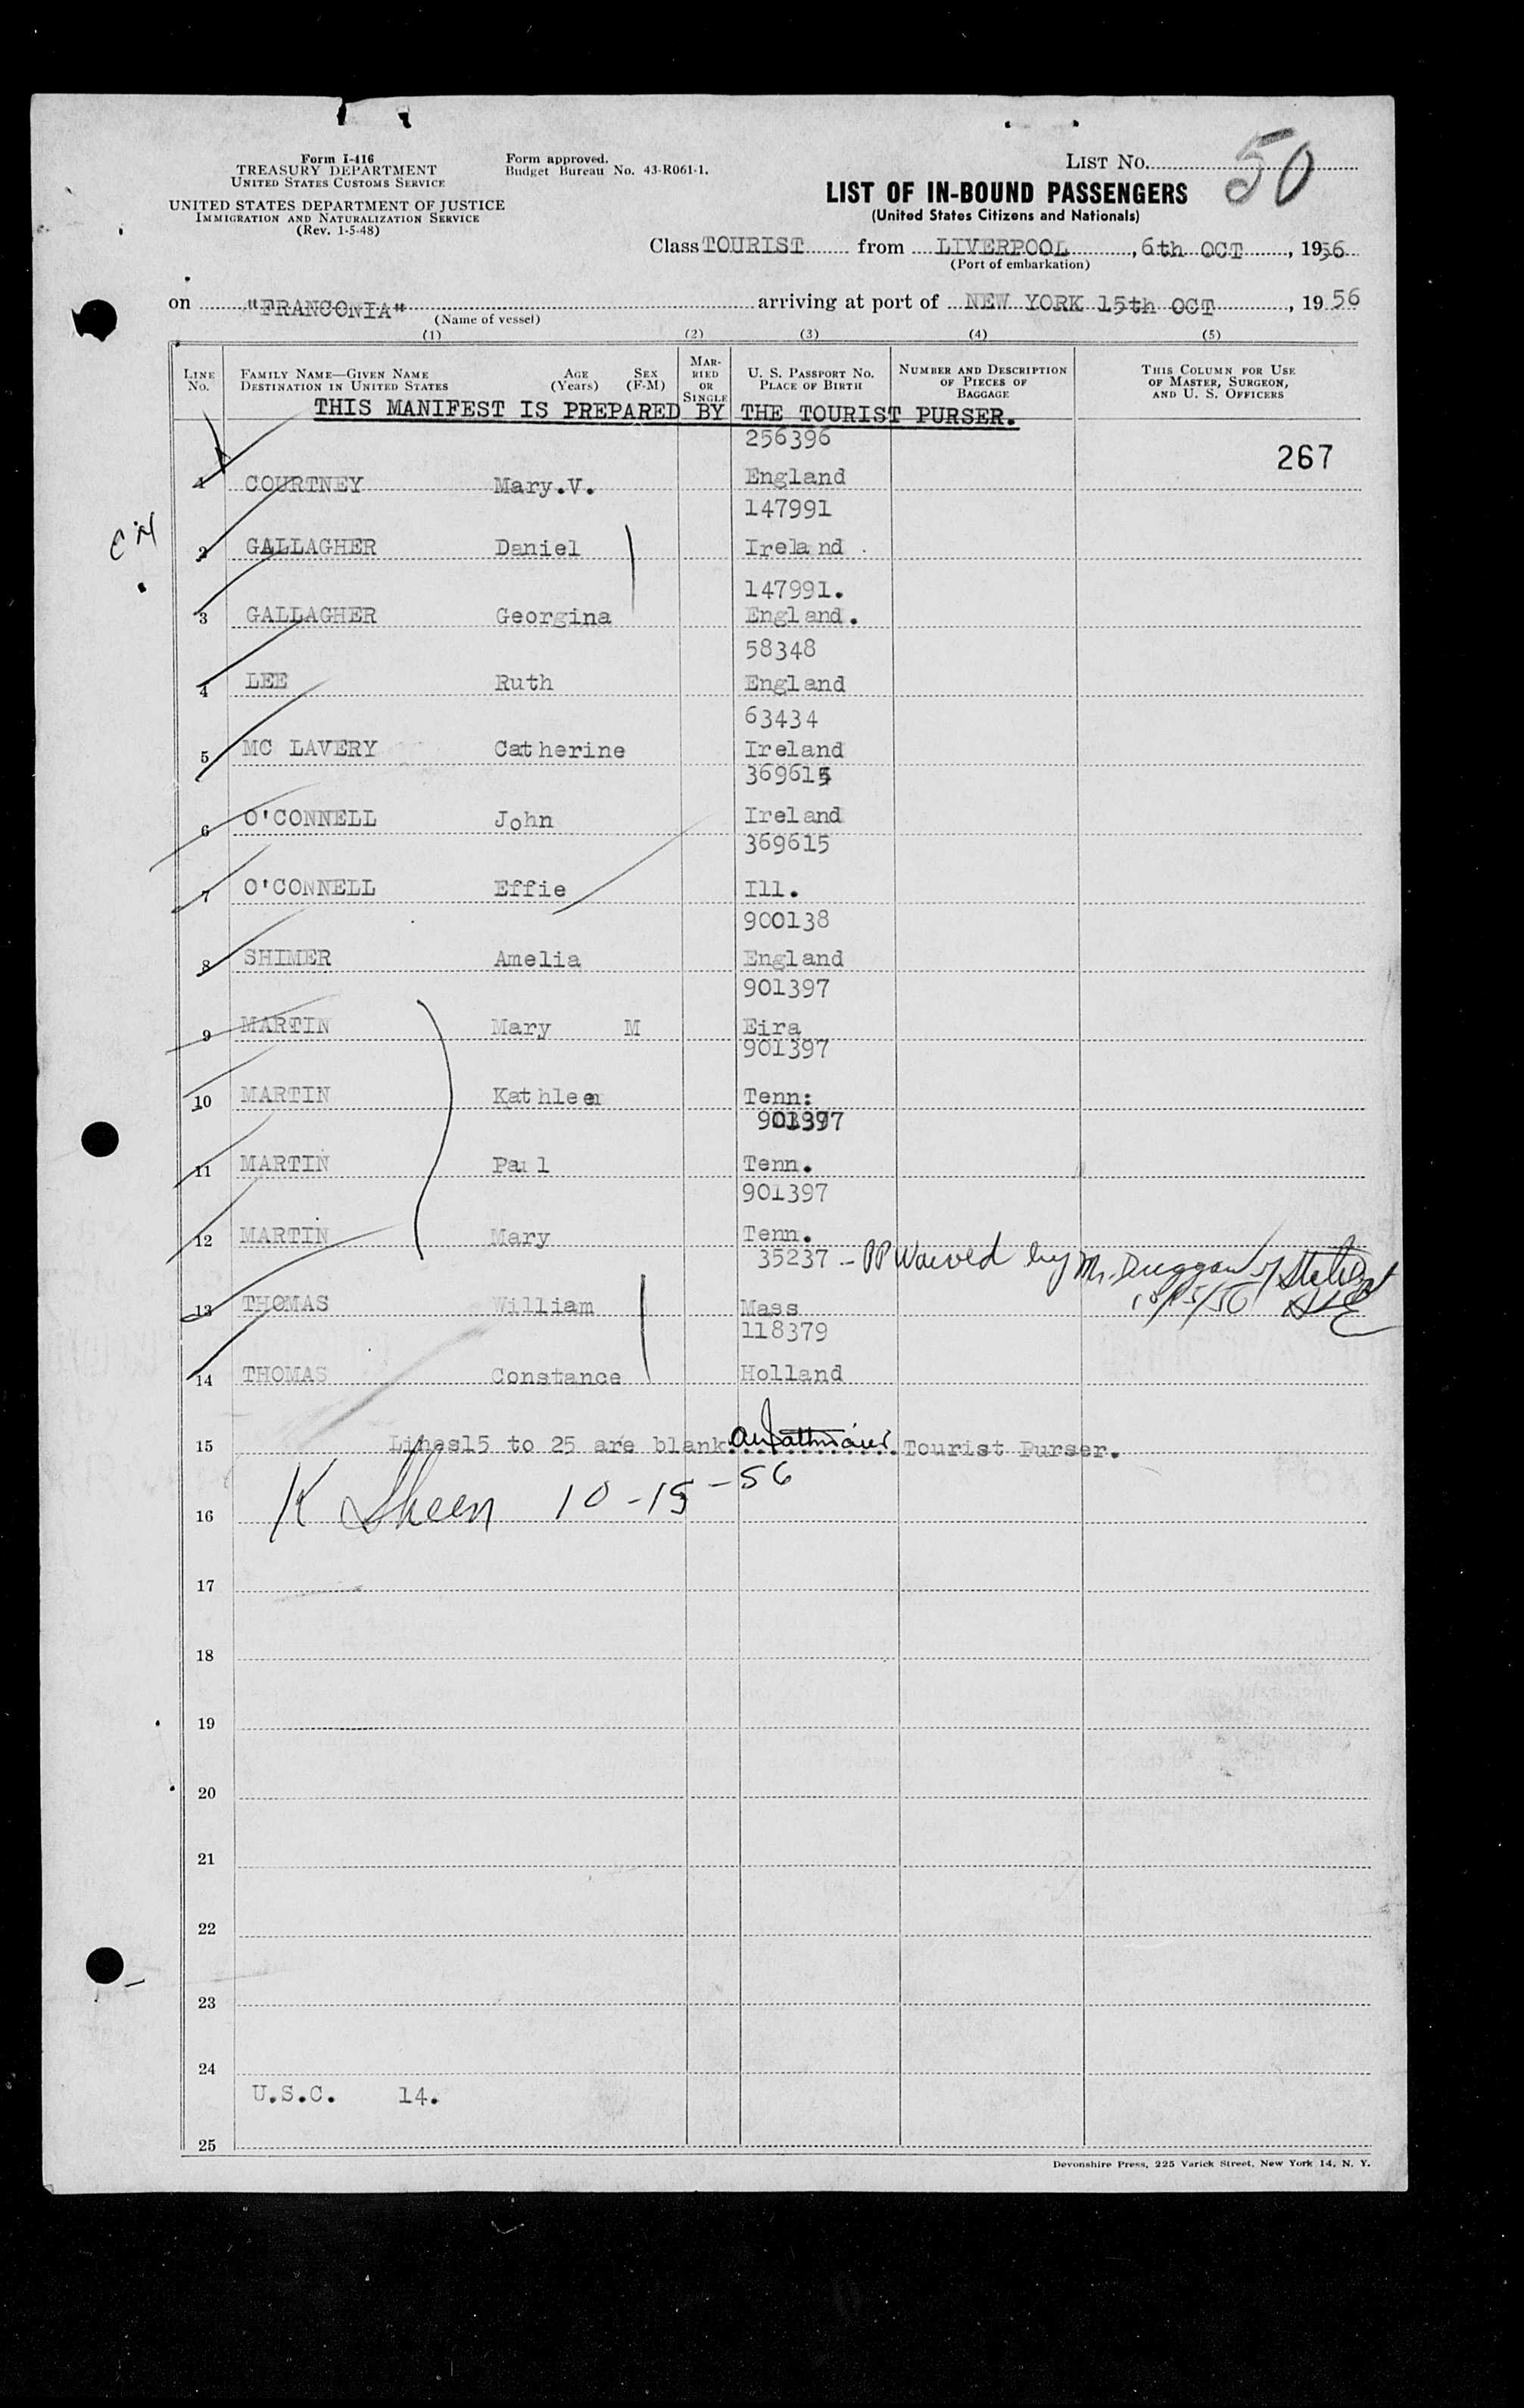 Form I-416
TREASURY DEPARTMENT
UNITED STATES CUSTOMS SERVICE
UNITED STATES DEPARTMENT OF JUSTICE
IMMIGRATION AND NATURALIZATION SERVICE
(Rev. 1-5-48)
Form approved.
Budget Bureau No. 43-R061-1.
LIST NO. 50
LIST OF IN-BOUND PASSENGERS
(United States Citizens and Nationals)
Class TOURIST from LIVERPOOL, 6th OCT, 1956
(Port of embarkation)
on "FRANCONIA" arriving at port of NEW YORK 15th OCT, 1956
(Name of vessel)
(1) (2) (3) (4) (5)
LINE NO. FAMILY NAME—GIVEN NAME DESTINATION IN UNITED STATES AGE (Years) SEX (F-M) MARRIED OR SINGLE U. S. PASSPORT NO. PLACE OF BIRTH NUMBER AND DESCRIPTION OF PIECES OF BAGGAGE THIS COLUMN FOR USE OF MASTER, SURGEON, AND U. S. OFFICERS
THIS MANIFEST IS PREPARED BY THE TOURIST PURSER.
256396
267
1 COURTNEY Mary.V. England
147991
2 GALLAGHER Daniel Ireland
147991.
3 GALLAGHER Georgina England.
58348
4 LEE Ruth England
63434
5 MC LAVERY Catherine Ireland
369615
6 O'CONNELL John Ireland
369615
7 O'CONNELL Effie Ill.
900138
8 SHIMER Amelia England
901397
9 MARTIN Mary M Eira
901397
10 MARTIN Kathleen Tenn:
901397
11 MARTIN Paul Tenn.
901397
12 MARTIN Mary Tenn.
35237 - PP Waived by Mr. Duggan of State Dept
10/15/56
13 THOMAS William Mass
118379
14 THOMAS Constance Holland
15 Lines15 to 25 are blank. Tourist Purser.
K Sheen 10-15-56
16
17
18
19
20
21
22
23
24
U.S.C. 14.
25
Devonshire Press, 225 Varick Street, New York 14, N. Y.